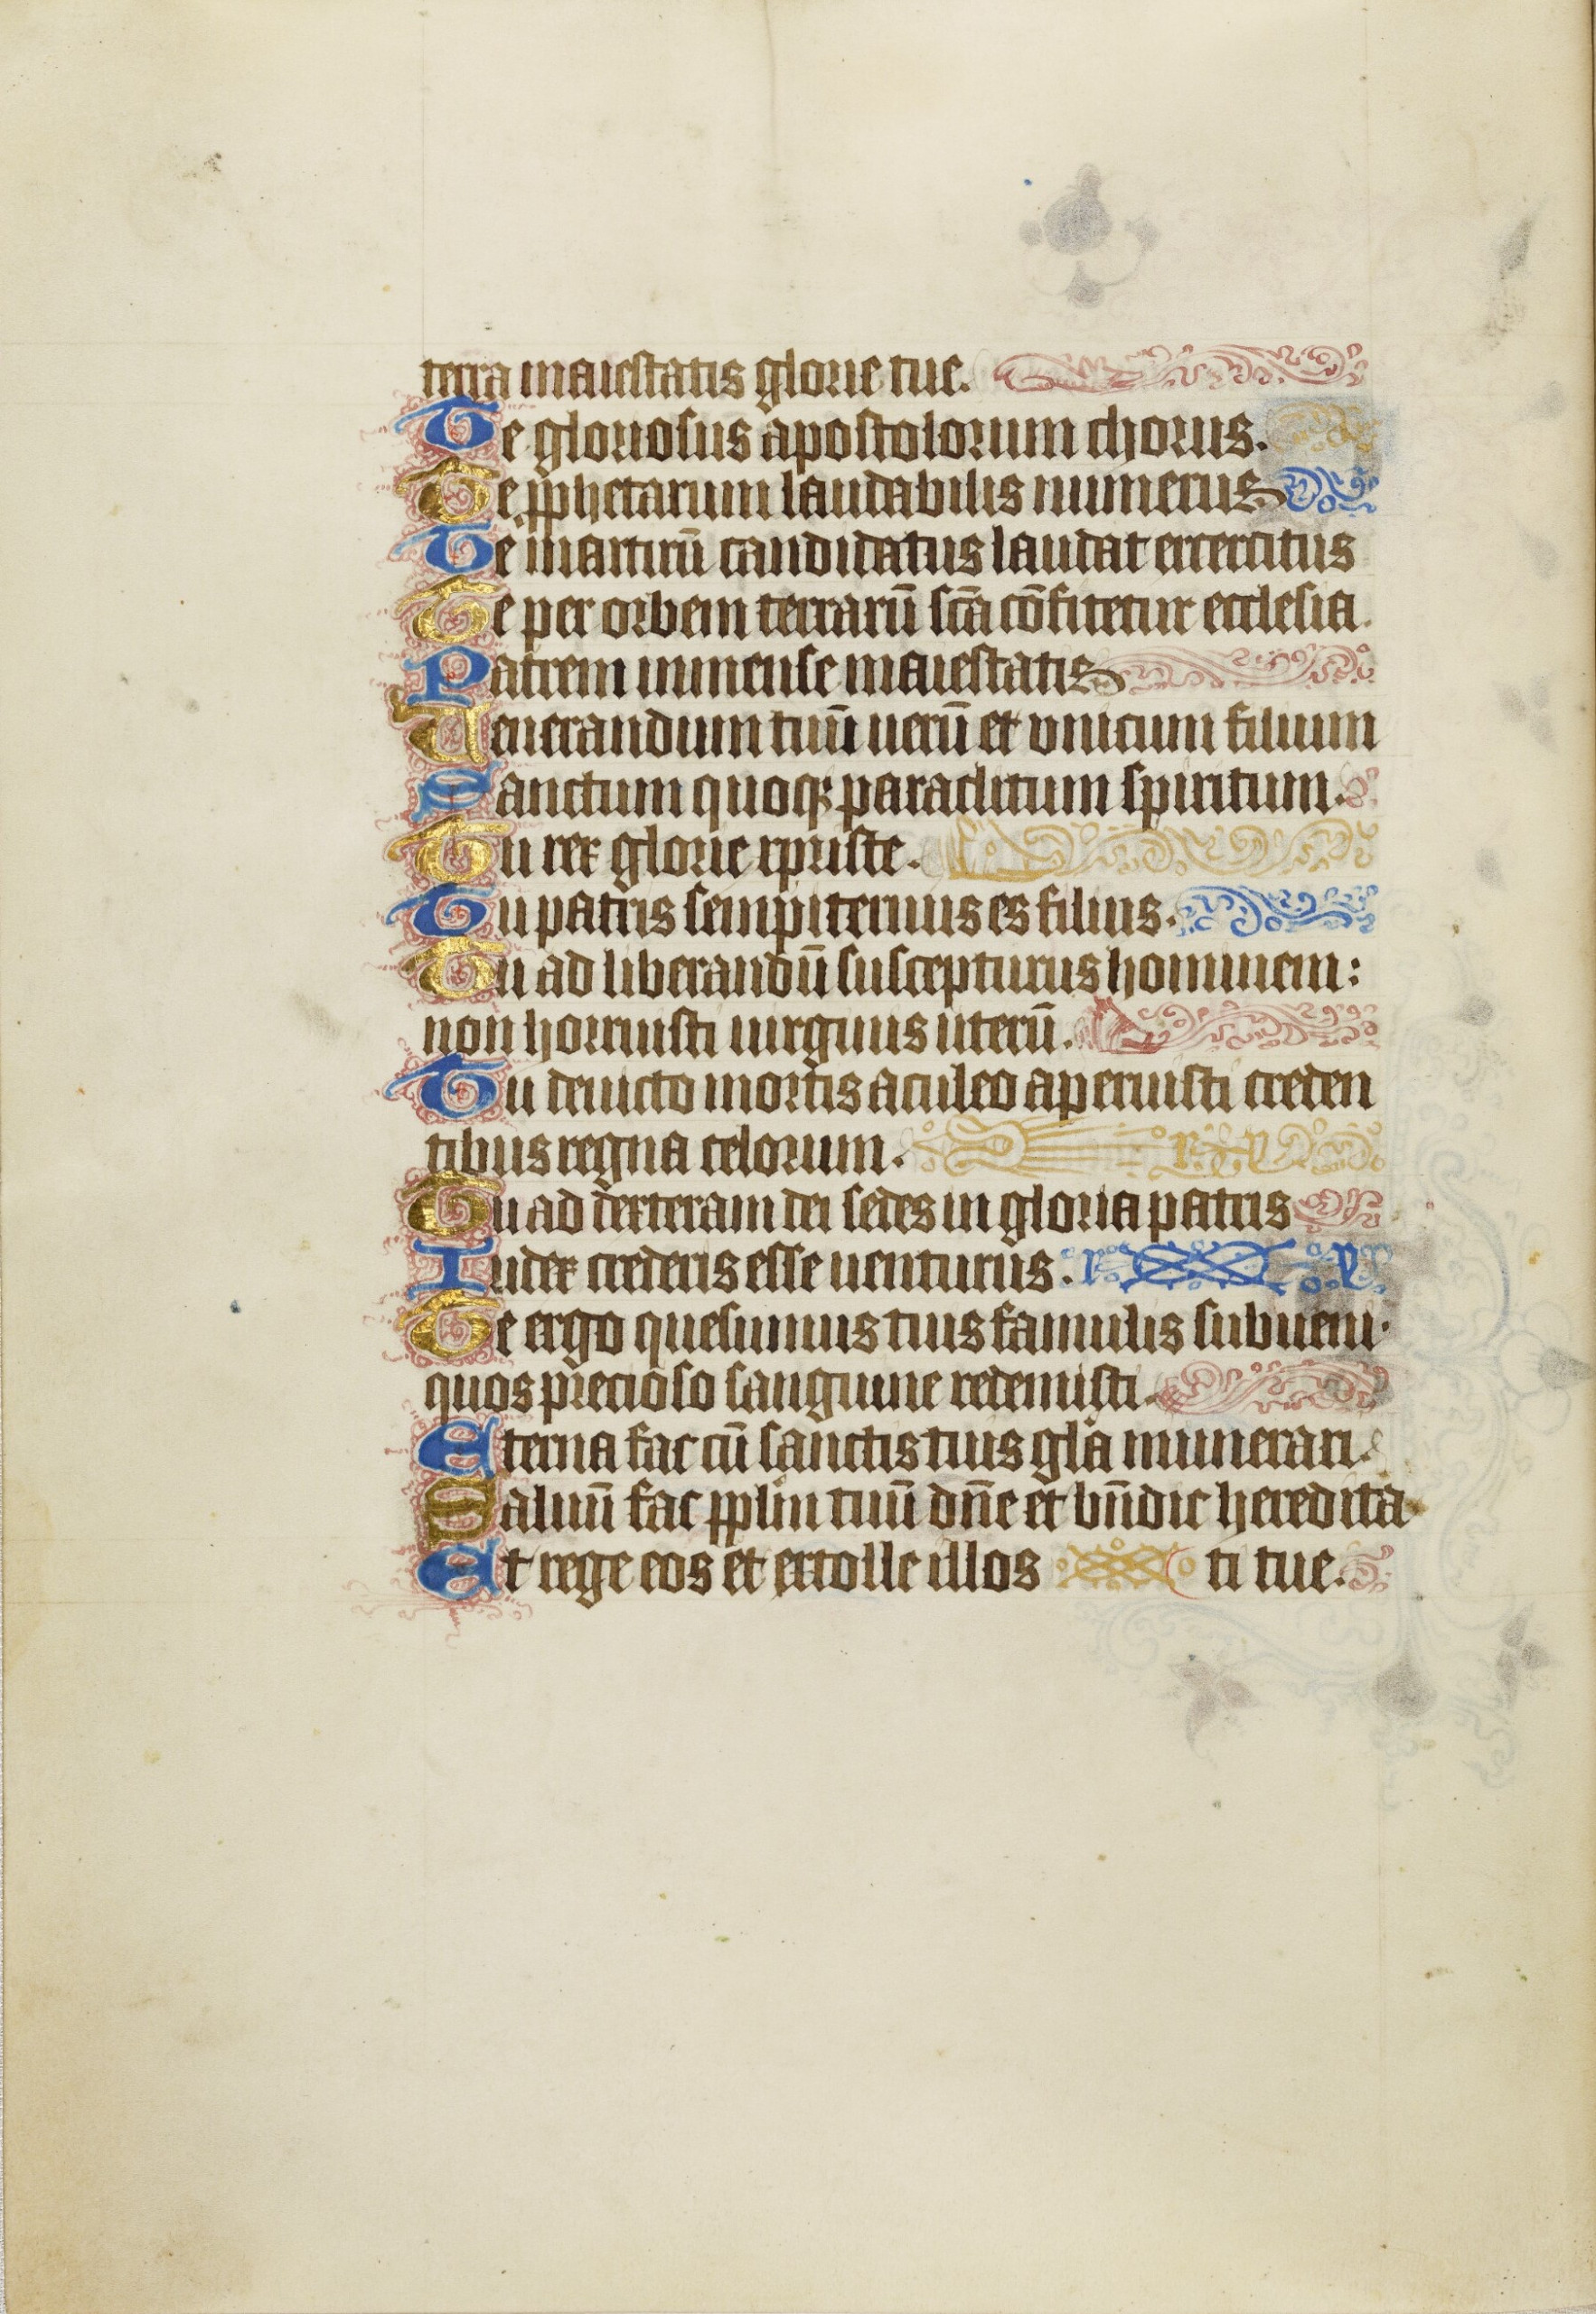 terra maiestatis glorie tue.
Te gloriosus apostolorum chorus.
Te pphetarum laudabilis numerus
Te martirū candidatus laudat excercitus
Te per orbem terrarū scā cōfitetur ecclesia.
Patrem inmense maiestatis
Uenerandum tuū uerū et vnicum filium
Sanctum quoqꝫ paraclitum spiritum.
Tu rex glorie xpriste.
Tu patris sempiternus es filius.
Tu ad liberandū suscepturus hominem:
non horruisti uirginis uterū.
Tu deuicto mortis aculeo aperuisti creden
tibus regna celorum.
Tu ad dexteram dei sedes in gloria patris
Iudex crederis esse uenturus.
Te ergo quesumus tuis famulis subueni.
quos precioso sanguine redemisti.
Eterna fac cū sanctis tuis gl'a munerari.
Saluū fac pplm tuū dn̄e et bn̄dic heredita
Et rege eos et extolle illos ti tue.